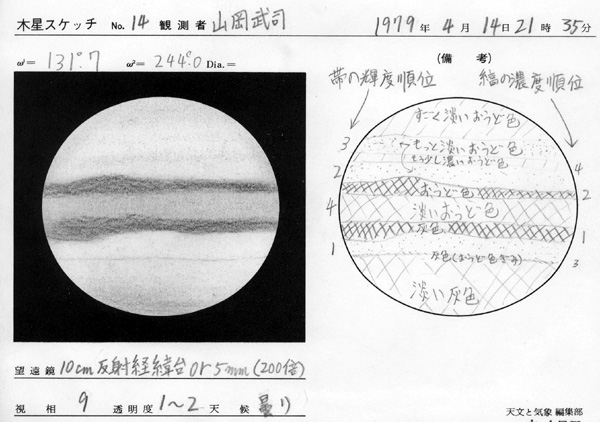 木星スケッチ No. 14 観測者 山岡武司 1979年 4月 14日 21時 35分
ω¹= 131°.7 ω²= 244°.0 Dia.=
(備 考)
帯の輝度順位 縞の濃度順位
すごく淡いおうど色
3 もっと淡いおうど色
もう少し濃いおうど色 4
2 おうど色 2
4 淡いおうど色
灰色 1
1 灰色(おうど色ぎみ) 3
淡い灰色
望遠鏡 10cm反射経緯台 Or 5mm (200倍)
視相 9 透明度 1〜2 天候 曇り
天文と気象 編集部